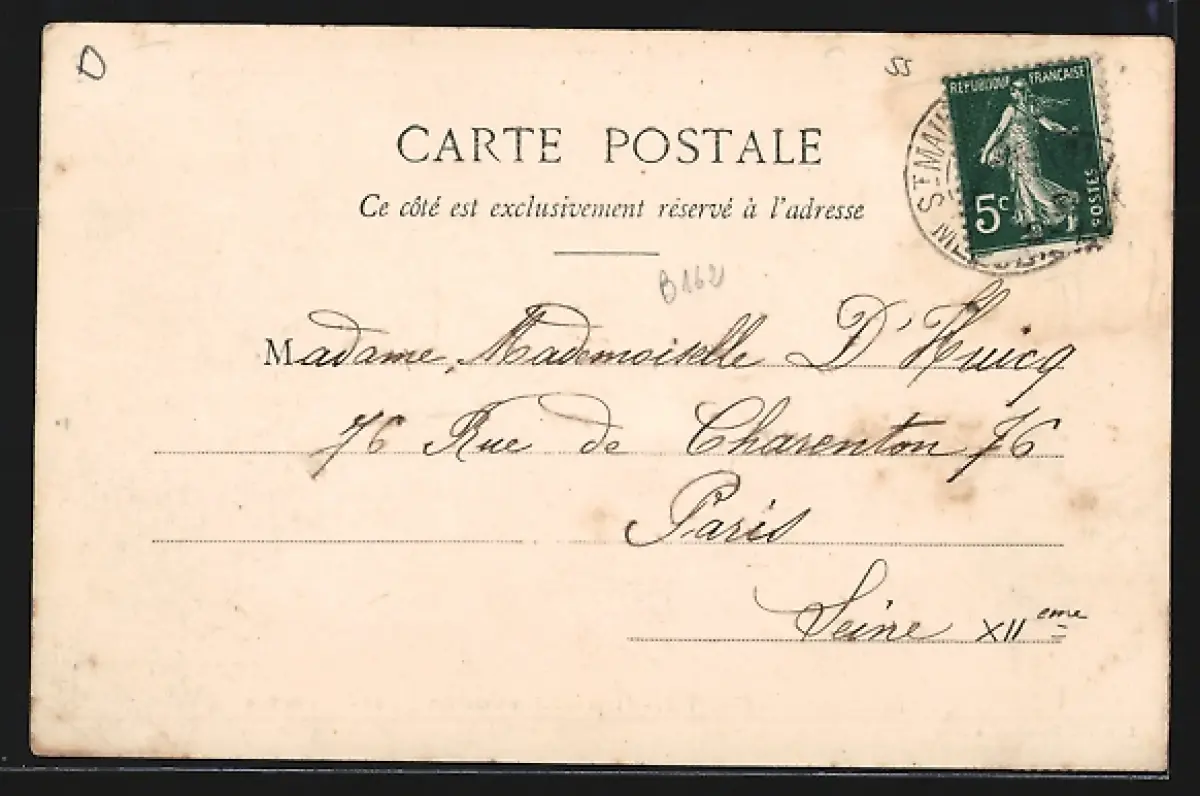 D
55
RÉPUBLIQUE FRANÇAISE
5c
POSTES
CARTE POSTALE
Ce côté est exclusivement réservé à l'adresse
B162
Madame, Mademoiselle D'Huicq
76 Rue de Charenton 76
Paris
Seine XIIeme